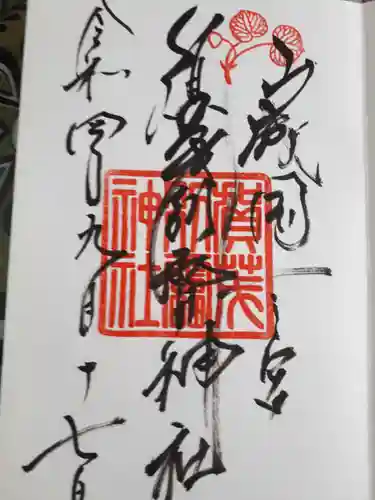 山城國一之宮
賀茂別雷神社
令和四年九月十七日
賀茂
別雷
神社